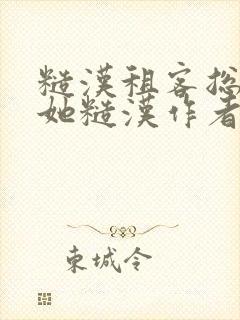 糙漢租客总
她糙漢作者
東城令